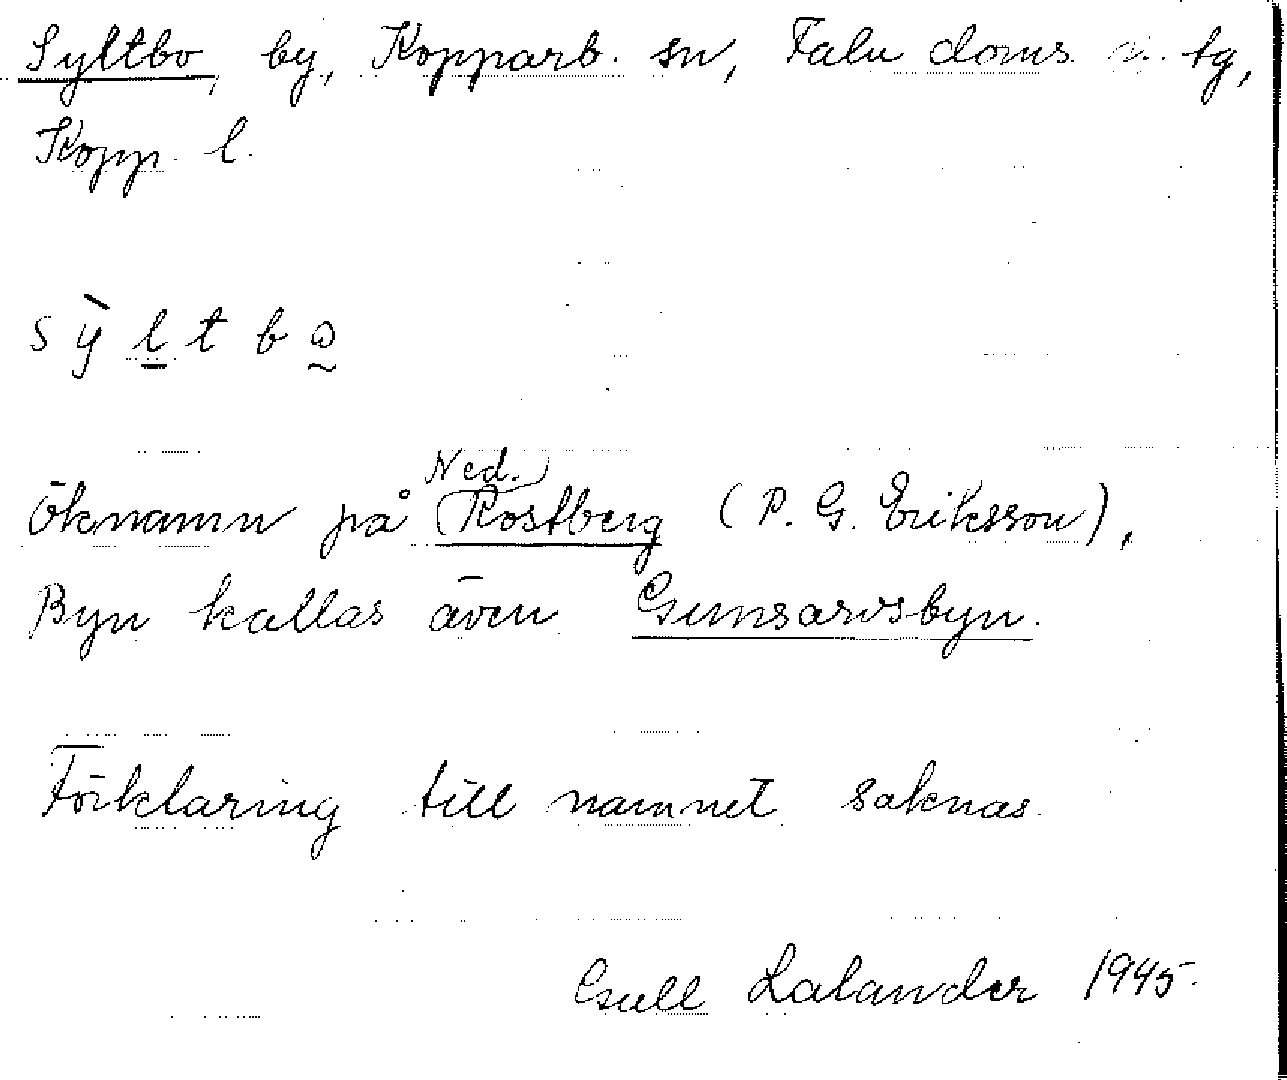 Syltbo, by, Kopparb. sn, Falu doms. tg,
Kopp. l.
sỳltbo
Öknamn på Ned. Rostberg (P. G. Eriksson),
Byn kallas även Gunsarvsbyn.
Förklaring till namnet saknas.
Gull Lalander 1945.